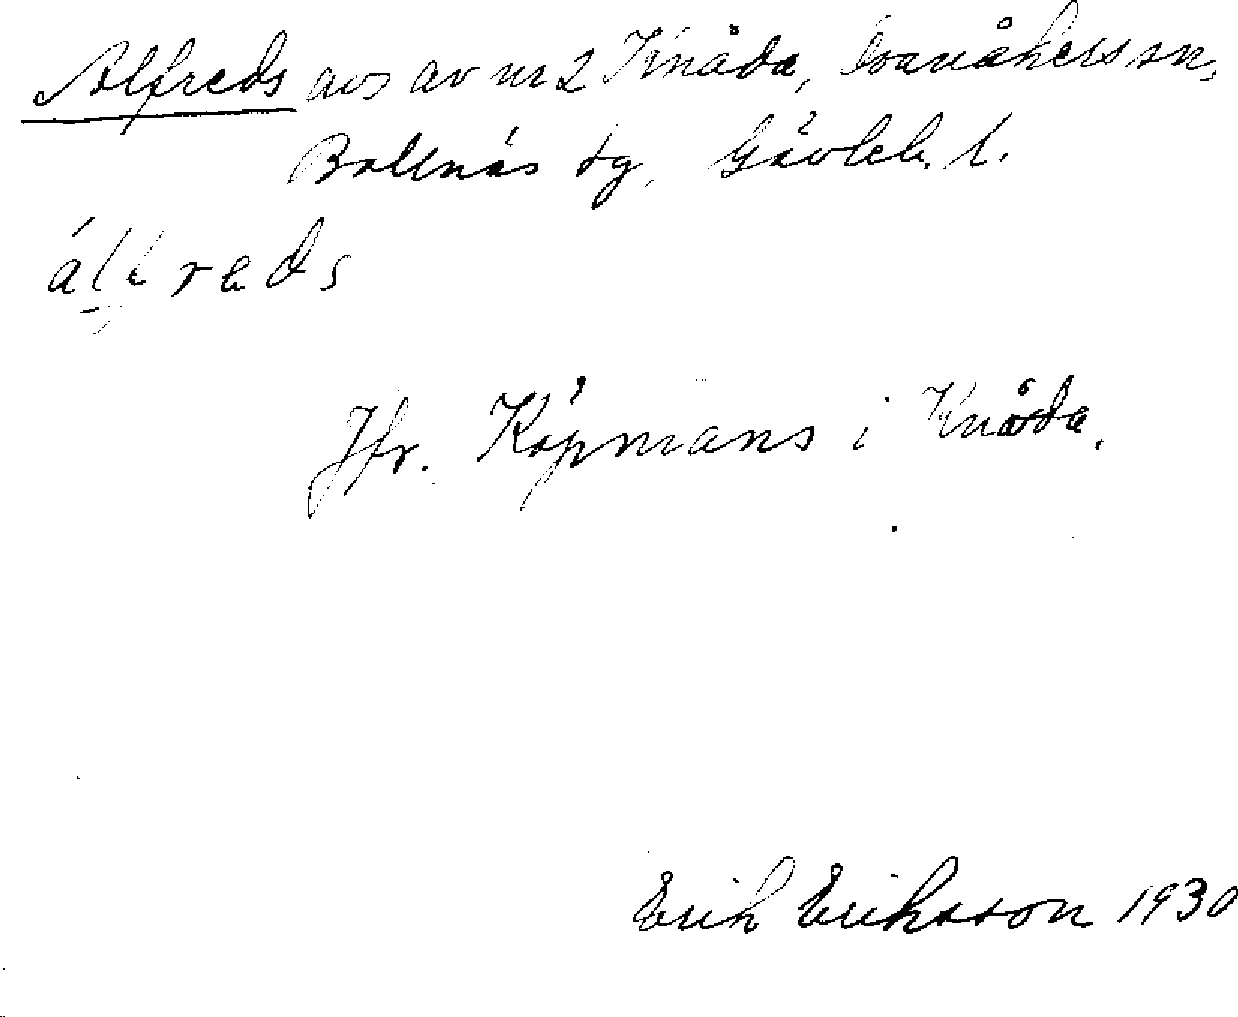 Alfreds avs av nr 2 Knåda, Svanåkers sn,
Bollnäs tg, Gävleb. l.
álfreds
Jfr. Köpmans i Knåda.
Erik Eriksson 1930